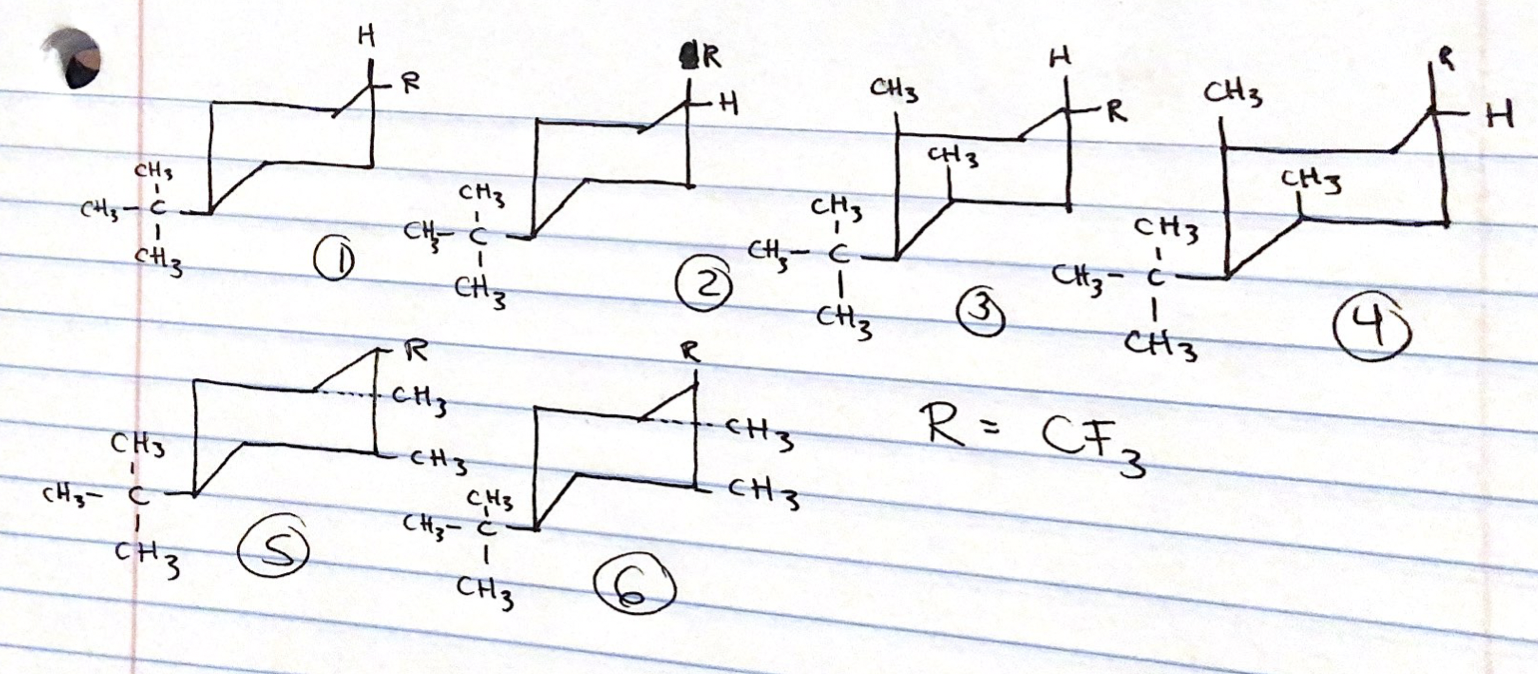 H
R
CH3
CH3-C
CH3
①
R
H
CH3
CH3-C
CH3
②
CH3
H
R
CH3
CH3
CH3-C
CH3
③
CH3
R
H
CH3
CH3
CH3-C
CH3
④
R
CH3
CH3
CH3
CH3-C
CH3
⑤
R
CH3
CH3
CH3
CH3-C
CH3
⑥
R = CF3